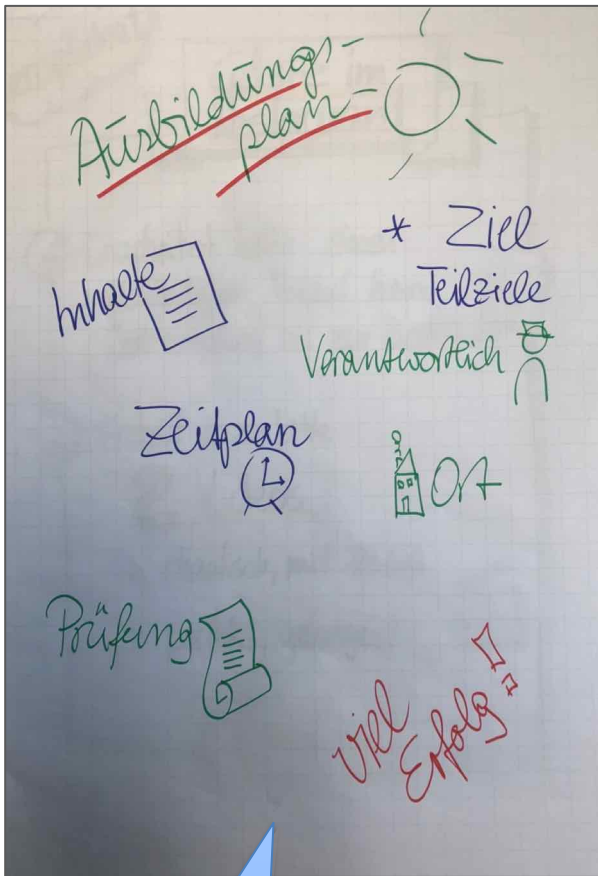 Ausbildungs-
plan
* Ziel
Teilziele
Inhalte
Verantwortlich
Zeitplan
Ort
Prüfung
Viel
Erfolg!